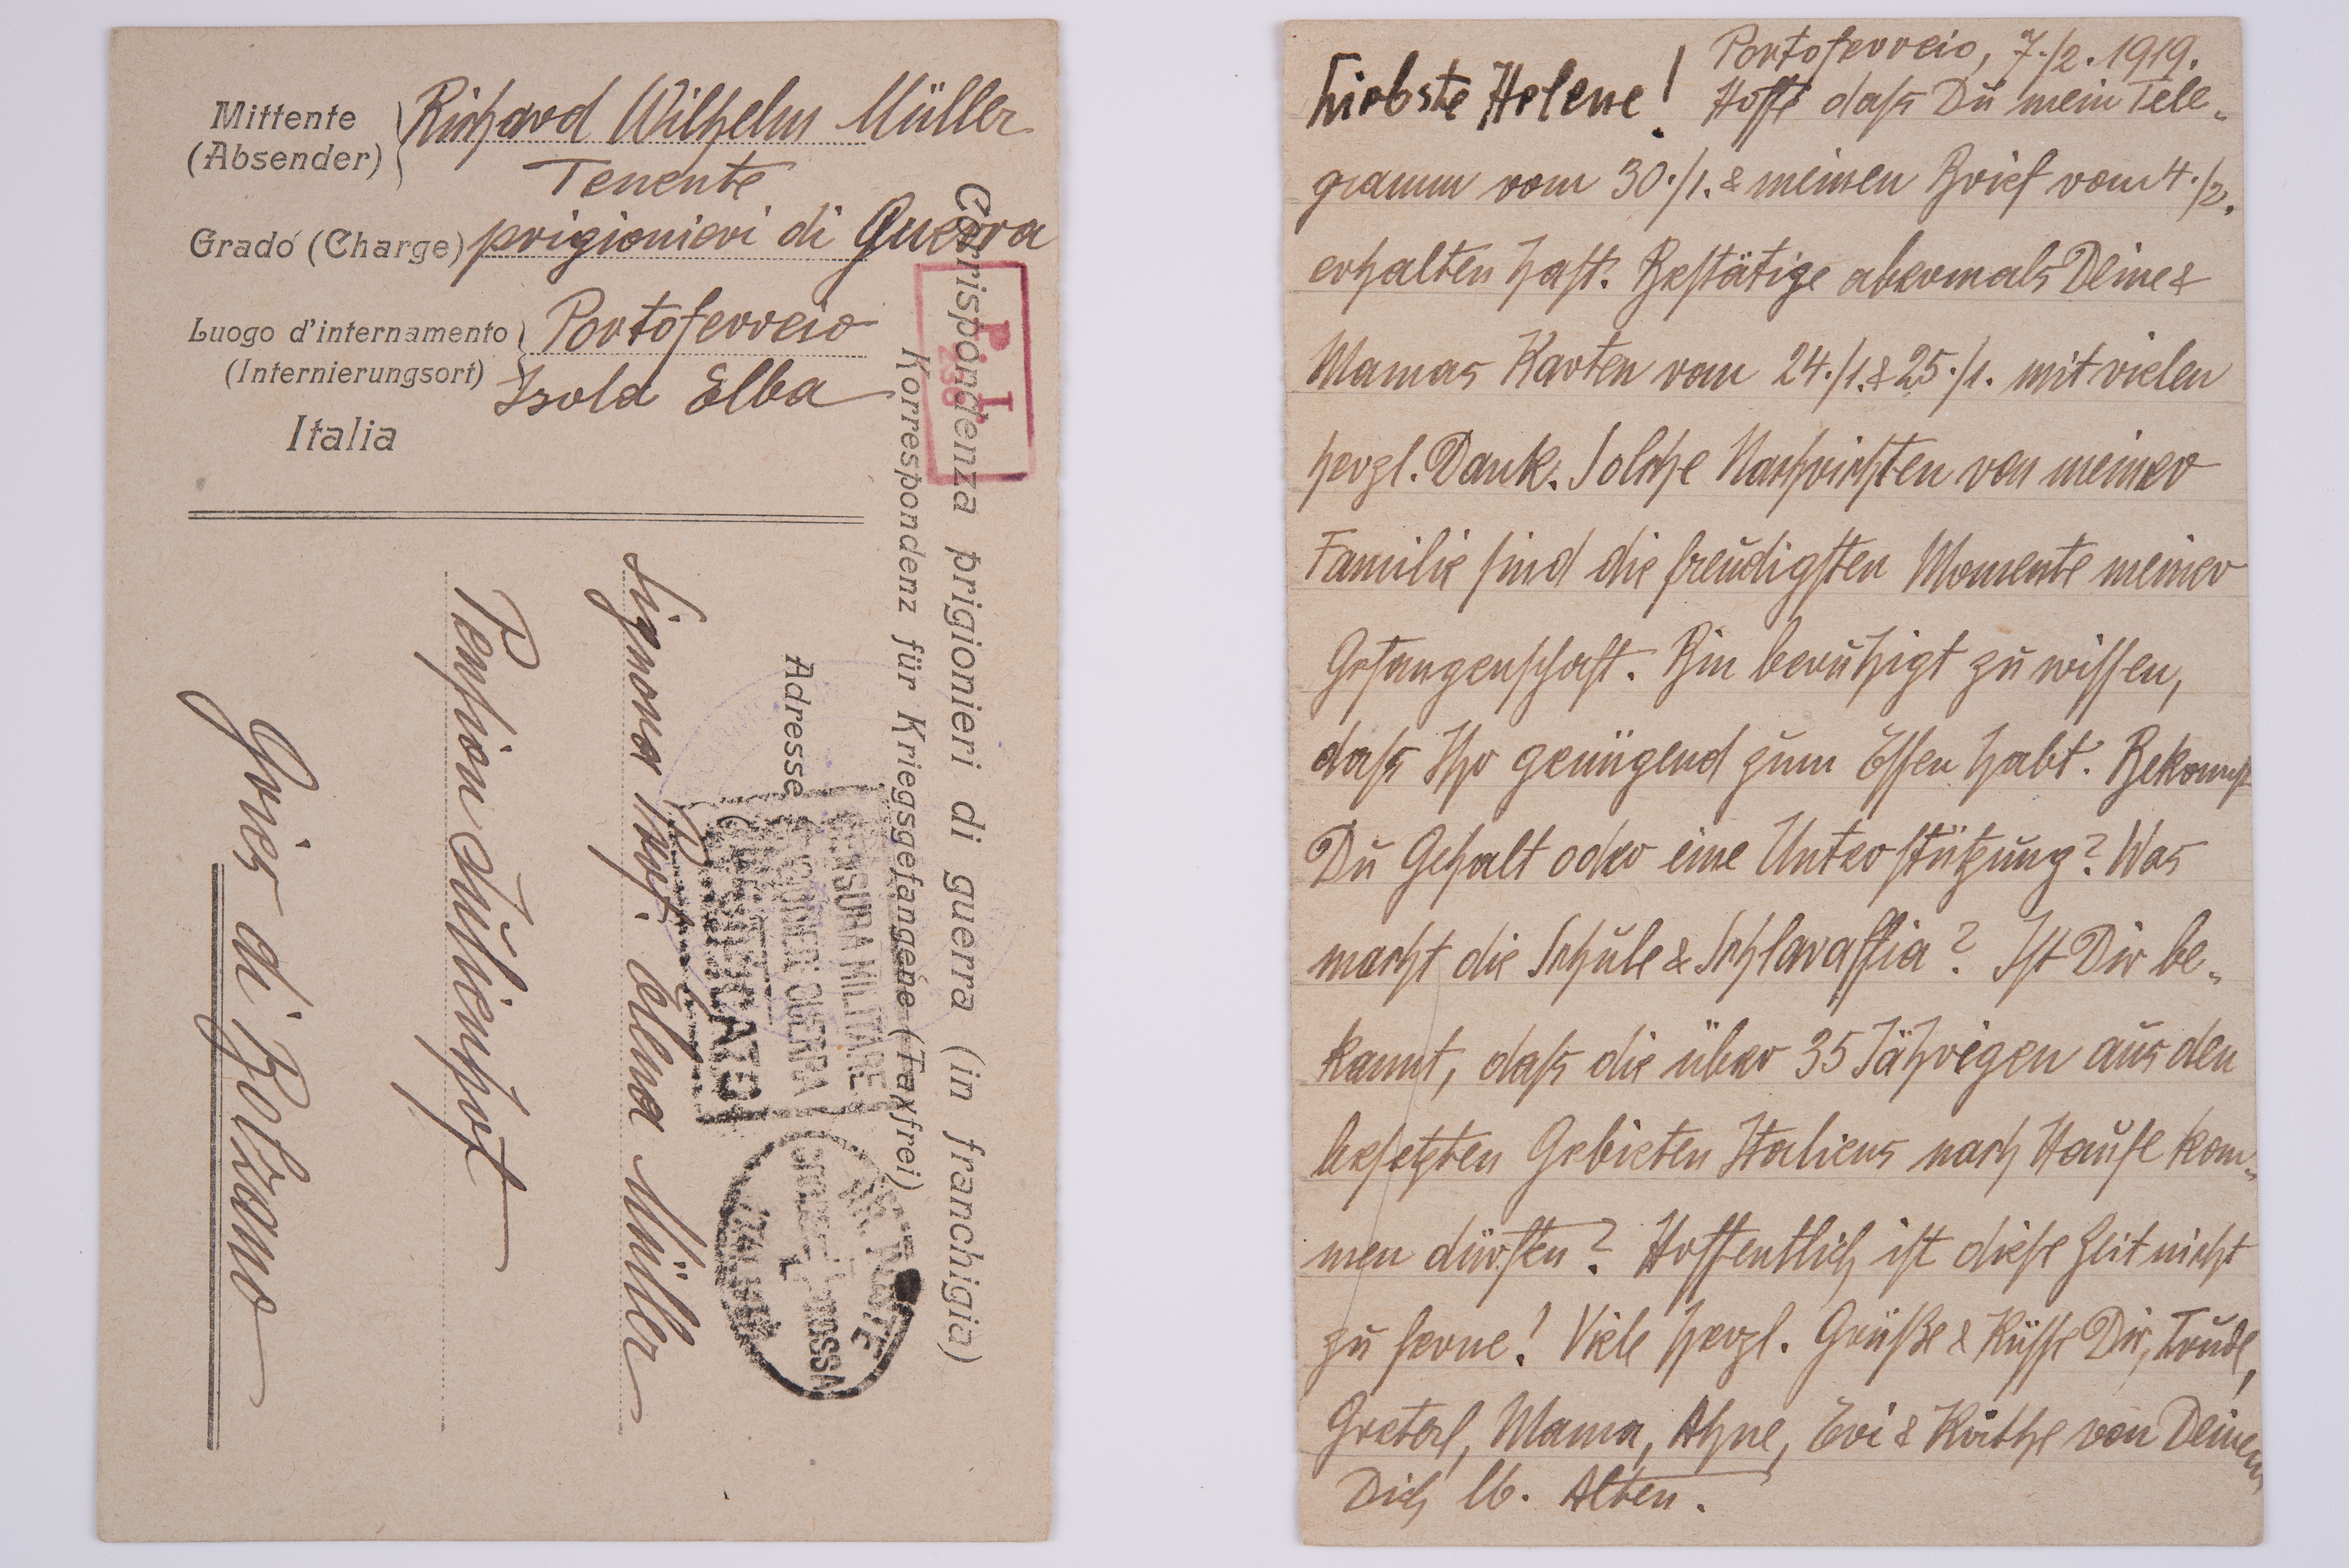 Mittente
(Absender)
Richard Wilhelm Müller
Tenente
Grado (Charge) prigionieri di Guerra
Luogo d'internamento
(Internierungsort)
Portoferreio
Isola Elba
Italia
Corrispondenza prigionieri di guerra (in franchigia)
Korrespondenz für Kriegsgefangene (Taxfrei)
P. I.
238
Adresse
CENSURA MILITARE
GUERRA
VERIFICATO
ROSSA
Signora Prof. Müller
Pension
Gries di Bolzano
Portoferreio, 7./2. 1919.
Liebste Helene!
Hoffe daß Du mein Tele-
gramm vom 30./1. & meinen Brief vom 4./2.
erhalten hast. Bestätige abermals Deine &
Mamas Karten vom 24./1. & 25./1. mit vielen
herzl. Dank. Solche Nachrichten von meiner
Familie sind die freudigsten Momente meiner
Gefangenschaft. Bin beruhigt zu wissen,
daß Ihr genügend zum Essen habt. Bekommst
Du Gehalt oder eine Unterstützung? Was
macht die Schule & Schlaraffia? Ist Dir be-
kannt, daß die über 35 Jährigen aus den
besetzten Gebieten Italiens nach Hause kom-
men dürften? Hoffentlich ist diese Zeit nicht
zu ferne! Viele herzl. Grüße & Küsse Dir, Trude,
Greterl, Mama, Ahne, Evi & Käthe von Deinem
Dich lb. Alten.